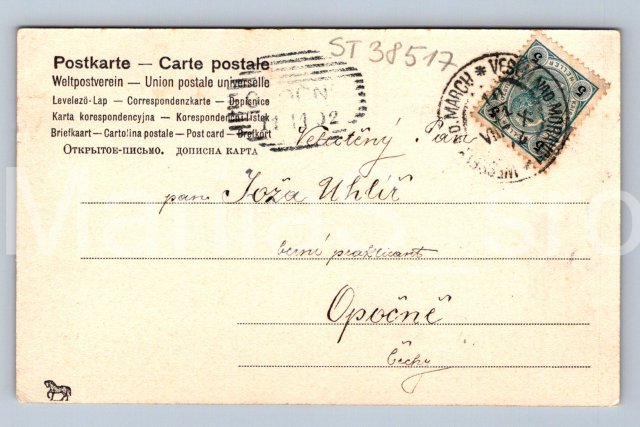 ST 38517
Postkarte — Carte postale
Weltpostverein — Union postale universelle
Levelező-Lap — Correspondenzkarte — Dopisnice
Karta korespondencyjna — Korespondenční lístek
Briefkaart — Cartolina postale — Post card — Brefkort
Открытое-письмо. дописна карта
1 11 02
Velectěný Pan
pan Joža Uhlíř
berní praktikant
Opočně
Čechy
5 5